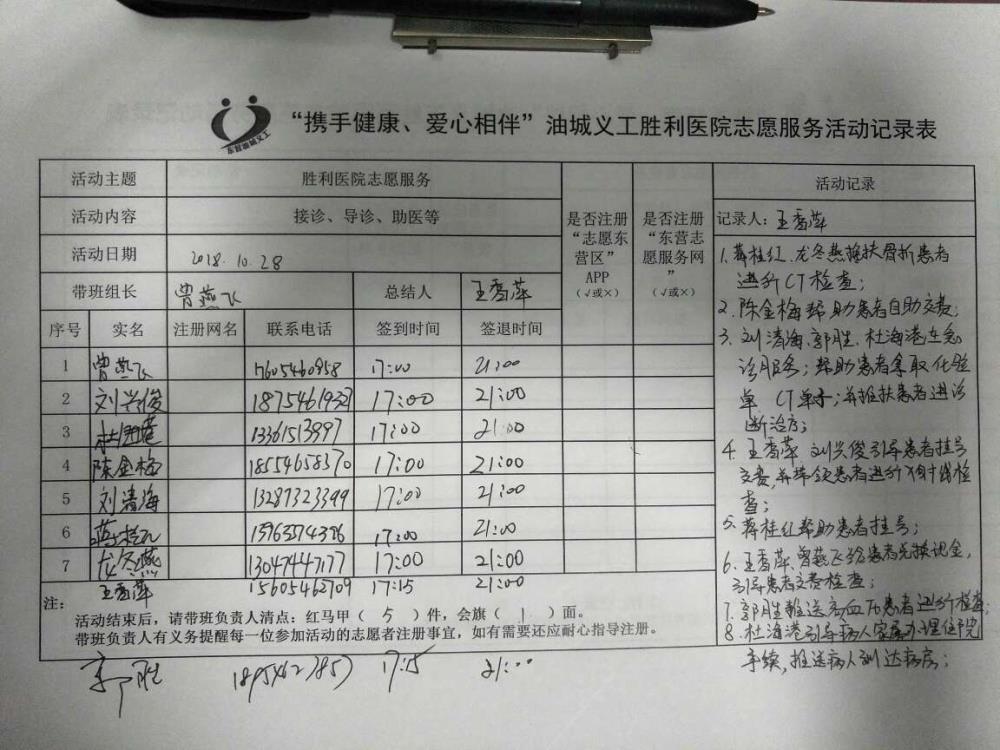 “携手健康、爱心相伴”油城义工胜利医院志愿服务活动记录表
活动主题 胜利医院志愿服务
活动内容 接诊、导诊、助医等
活动日期 2018.10.28
带班组长 曾燕飞 总结人 王香萍
是否注册“志愿东营区”APP（√或×）
是否注册“东营志愿服务网”（√或×）
序号 实名 注册网名 联系电话 签到时间 签退时间
1 曾燕飞 17:00 21:00
2 刘兴俊 17:00 21:00
3 杜海港 13361513997 17:00 21:00
4 陈金梅 18554658370 17:00 21:00
5 刘清海 13287323399 17:00 21:00
6 蒋桂红 17:00 21:00
7 龙冬燕 13047447177 17:00 21:00
王香萍 15605462709 17:15 21:00
注：
活动结束后，请带班负责人清点：红马甲（ 5 ）件，会旗（ 1 ）面。
带班负责人有义务提醒每一位参加活动的志愿者注册事宜，如有需要还应耐心指导注册。
郭胜 17:15 21:00
活动记录
记录人：王香萍
1.蒋桂红、龙冬燕推扶骨折患者
进行CT检查；
2.陈金梅帮助患者自助交费；
3.刘清海、郭胜、杜海港在急
诊服务；帮助患者拿取化验
单 CT单子；并推扶患者进诊
断治疗；
4.王香萍 刘兴俊引导患者挂号
交费，并带领患者进行 检
查；
5.蒋桂红帮助患者挂号；
6.王香萍、曾燕飞给患者兑换现金，
引导患者交费检查；
7.郭胜推送 患者进行检查；
8.杜海港引导病人家属办理住院
手续，推送病人到达病房；